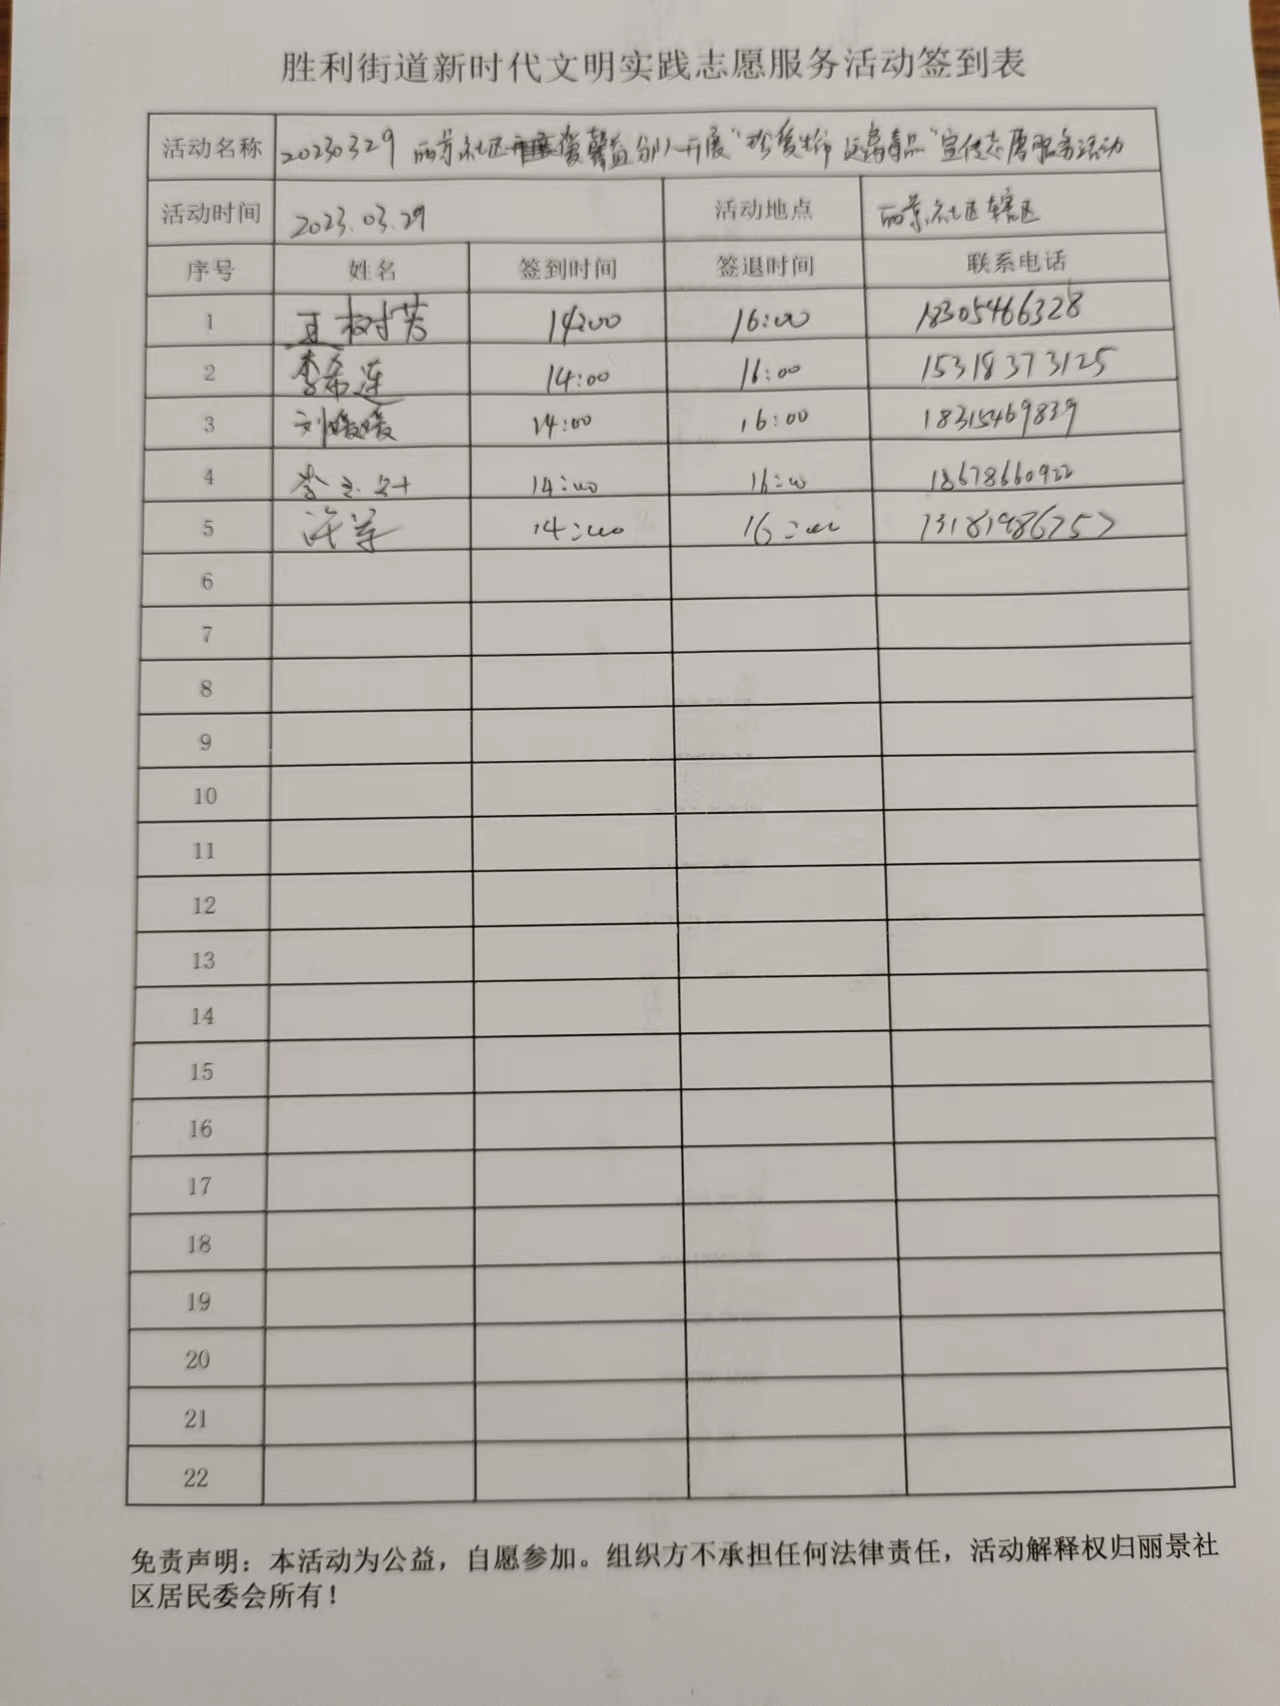 胜利街道新时代文明实践志愿服务活动签到表
活动名称 20230329 丽景社区爱馨益分队开展“珍爱生命 远离毒品”宣传志愿服务活动
活动时间 2023.03.29 活动地点 丽景社区辖区
序号 姓名 签到时间 签退时间 联系电话
1 树芳 14:00 16:00 18305466328
2 李希莲 14:00 16:00 15318373125
3 刘媛媛 14:00 16:00 18315469839
4 14:00 16:00 18678660922
5 14:00 16:00
6
7
8
9
10
11
12
13
14
15
16
17
18
19
20
21
22
免责声明：本活动为公益，自愿参加。组织方不承担任何法律责任，活动解释权归丽景社
区居民委会所有！